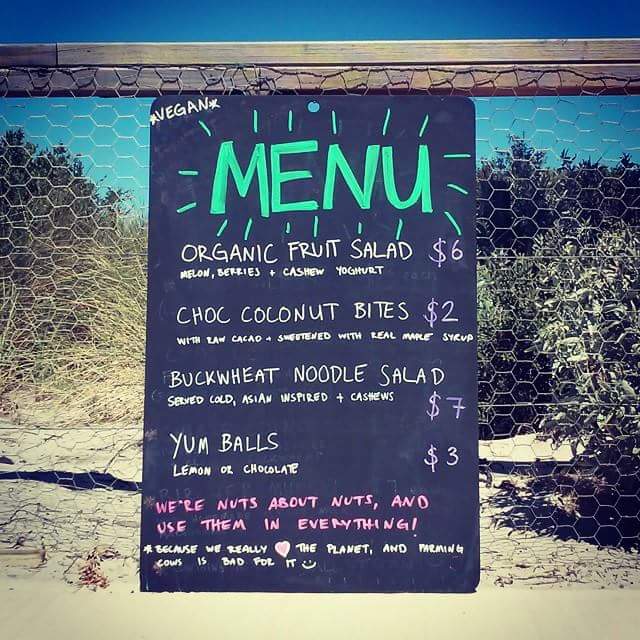 *VEGAN*
MENU
ORGANIC FRUIT SALAD $6
MELON, BERRIES + CASHEW YOGHURT
CHOC COCONUT BITES $2
WITH RAW CACAO + SWEETENED WITH REAL MAPLE SYRUP
BUCKWHEAT NOODLE SALAD
SERVED COLD, ASIAN INSPIRED + CASHEWS
$7
YUM BALLS $3
LEMON OR CHOCOLATE
*WE'RE NUTS ABOUT NUTS, AND
USE THEM IN EVERYTHING!
*BECAUSE WE REALLY ♥ THE PLANET, AND FARMING
COWS IS BAD FOR IT ☺